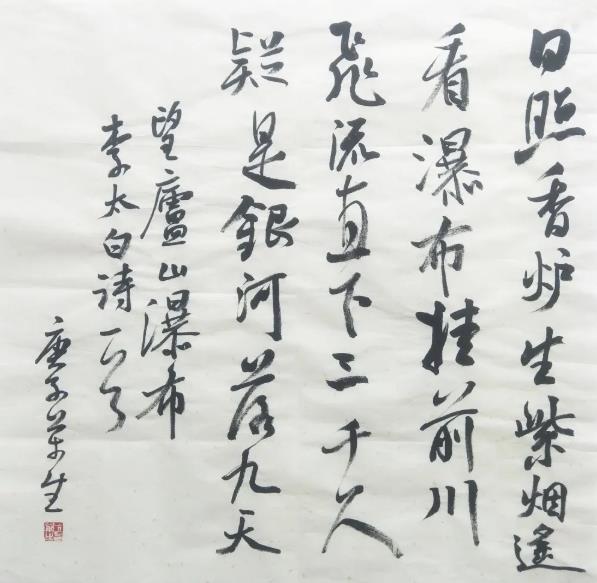 日照香炉生紫烟遥
看瀑布挂前川
飛流直下三千尺
疑是銀河落九天
望廬山瀑布
李太白诗一首
庚子